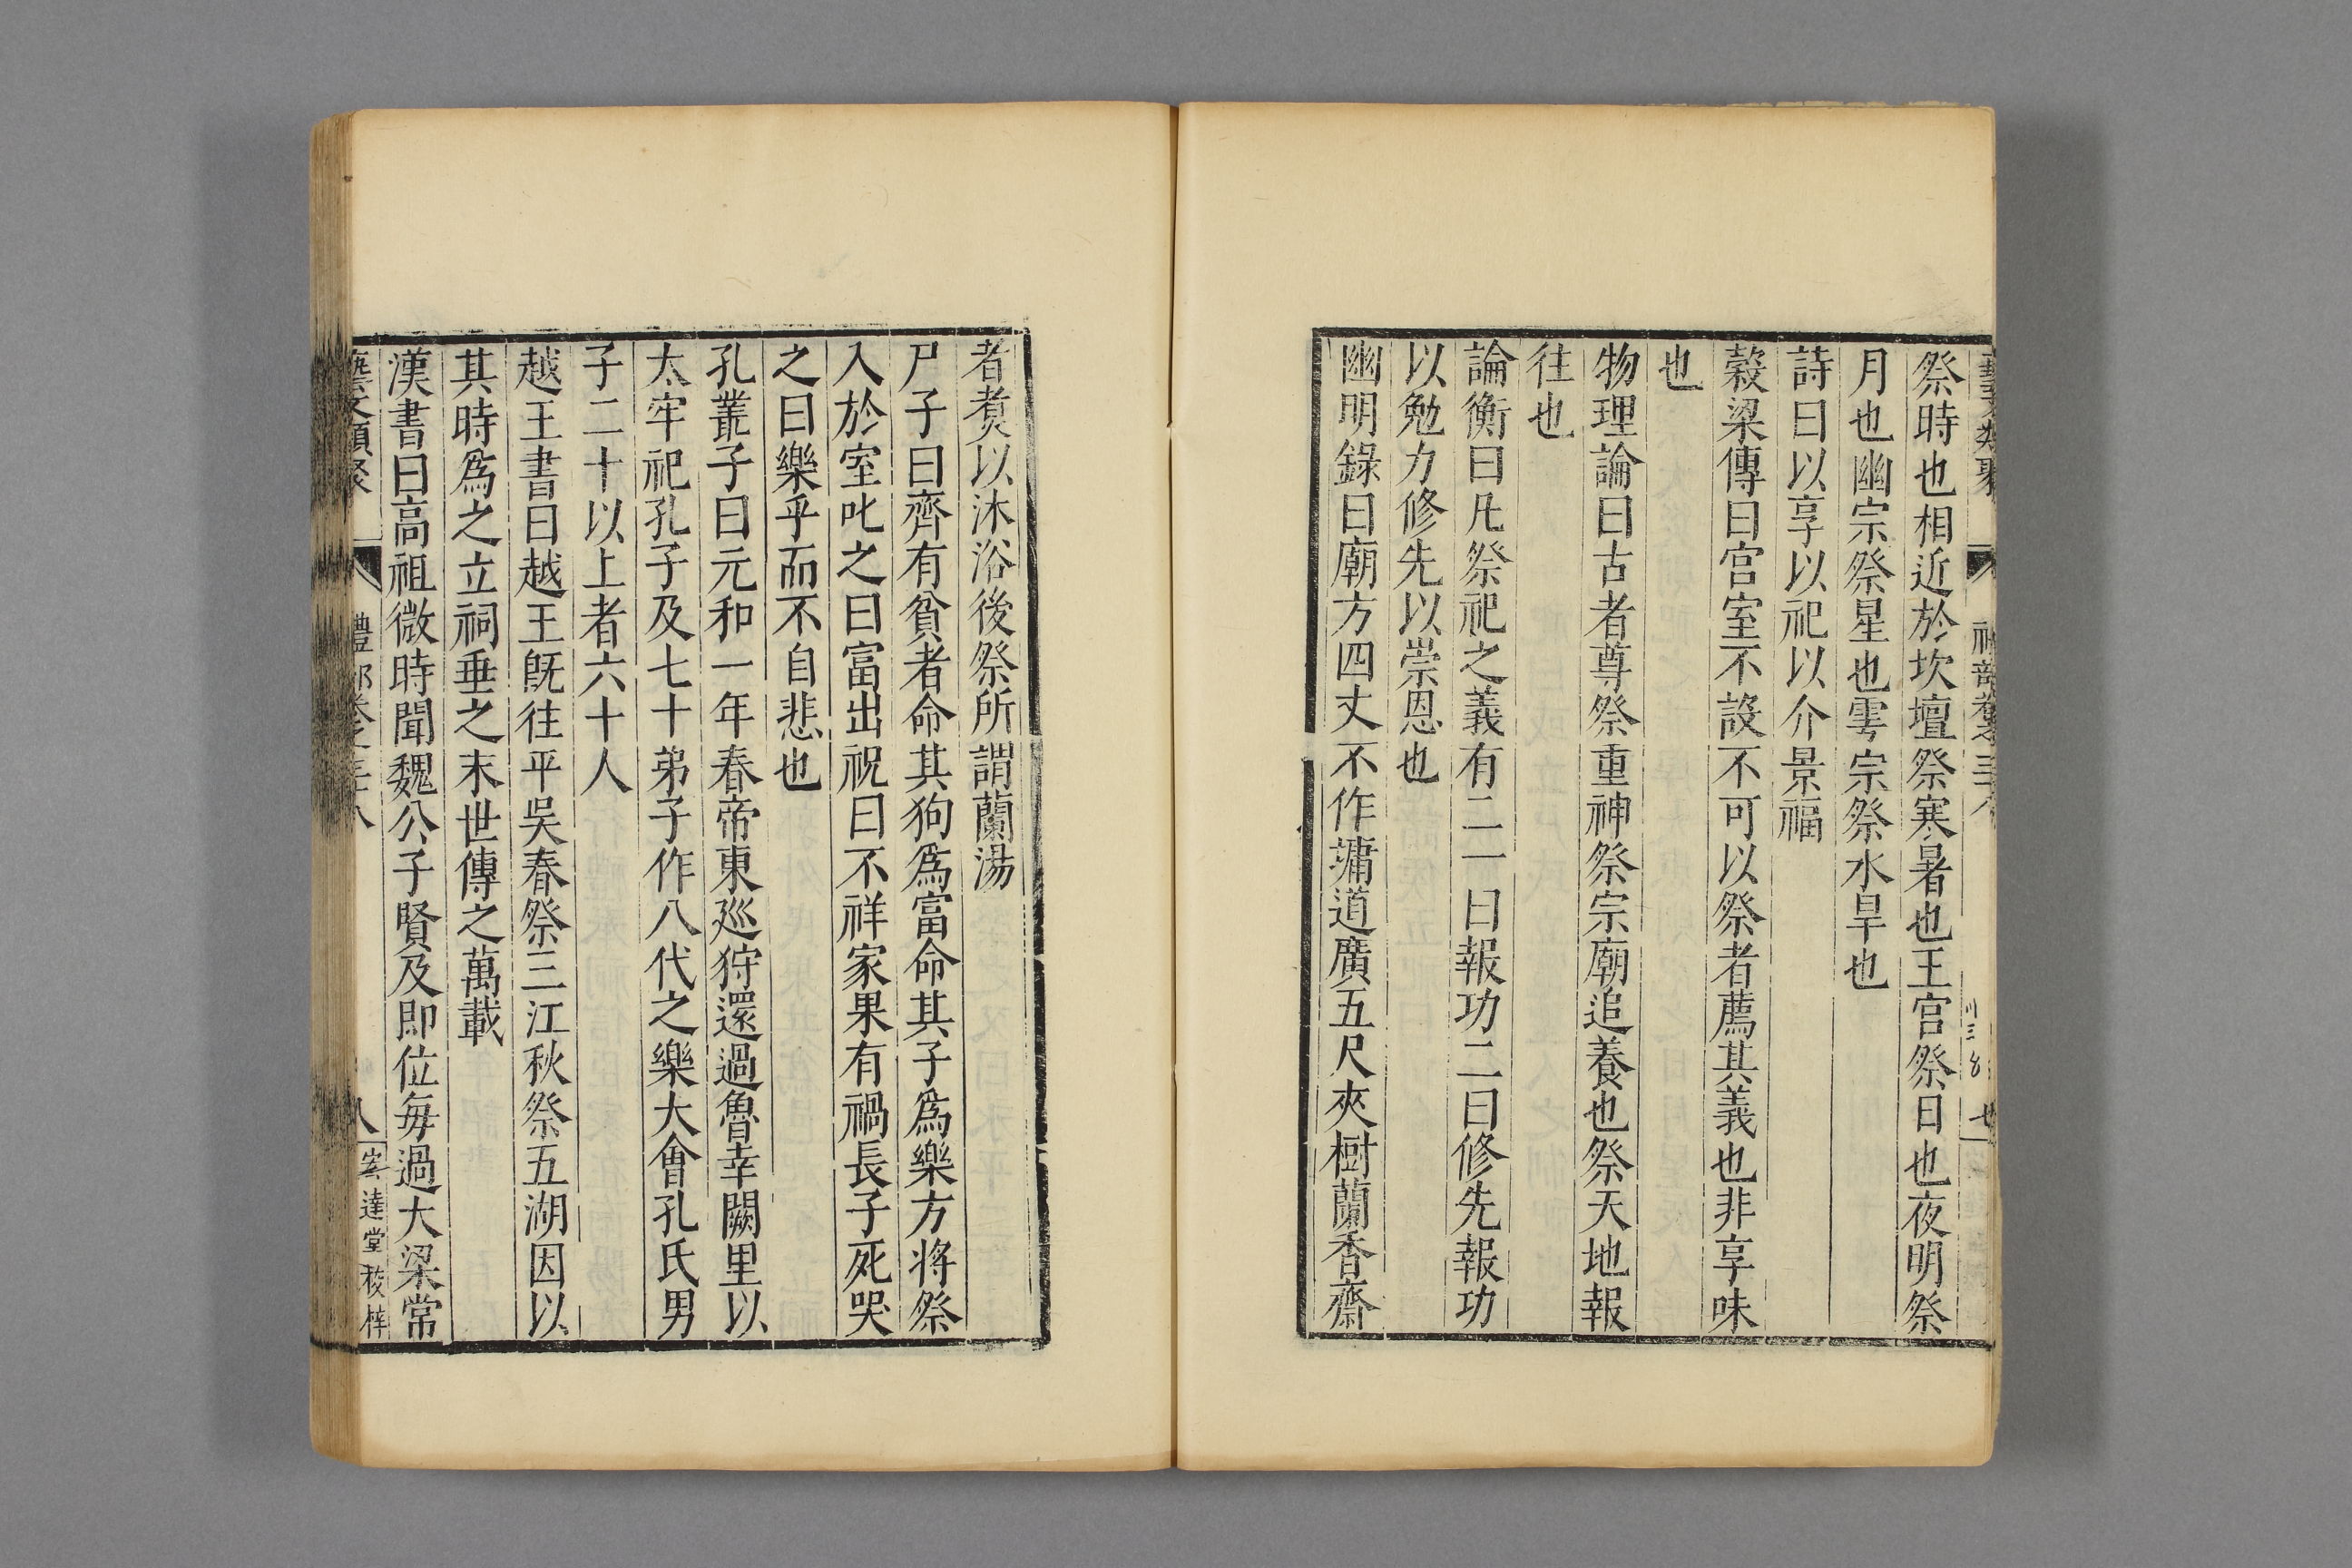 祭時也相近於坎壇祭寒暑也王宫祭日也夜明祭
月也幽宗祭星也雩宗祭水旱也
詩曰以享以祀以介景福
榖梁傳曰宫室不設不可以祭者薦其義也非享味
也
物理論曰古者尊祭重神祭宗廟追養也祭天地報
徃也
論衡曰凡祭祀之義有二一曰報功二曰修先報功
以勉力修先以崇恩也
幽明錄曰廟方四丈不作墉道廣五尺夾樹蘭香齋
者煑以沐浴後祭所謂蘭湯
尸子曰齊有貧者命其狗爲富命其子爲樂方將祭
入於室叱之曰富出祝曰不祥家果有禍長子死哭
之曰樂乎而不自悲也
孔叢子曰元和一年春帝東廵狩還過魯幸闕里以
太牢祀孔子及七十弟子作八代之樂大會孔氏男
子二十以上者六十人
越王書曰越王旣徃平吳春祭三江秋祭五湖因以
其時爲之立祠垂之末世傳之萬載
漢書曰高祖微時聞魏公子賢及即位每過大梁常
藝文類聚 禮部卷之三十八 八 宏達堂校梓